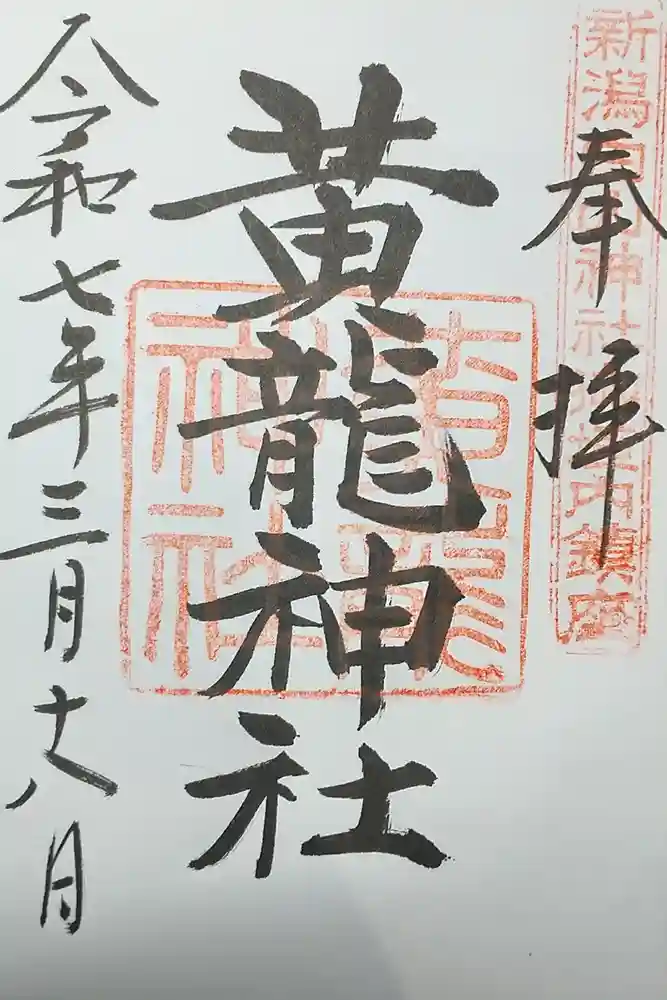 新潟白山神社境内鎮座
奉拝
黄龍神社
黄龍神社
令和七年三月十八日